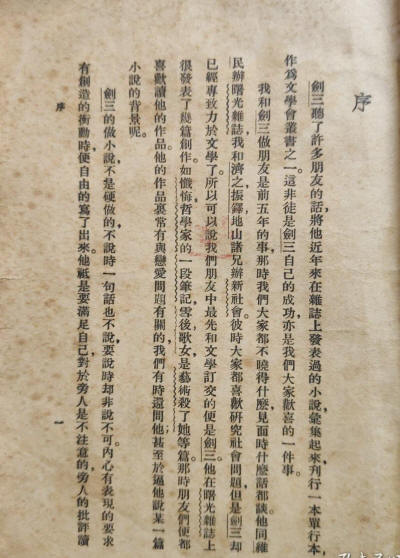 序
劍三聽了許多朋友的話，將他近年來在雜誌上發表過的小說，彙集起來，刊行一本單行本，
作爲文學會叢書之一。這非徒是劍三自己的成功，亦是我們大家歡喜的一件事。
我和劍三做朋友是前五年的事，那時我們大家都不曉得什麼，見面時什麼話都談。他同維
民辦曙光雜誌，我和濟之振鐸，地山諸兄辦新社會。彼時大家都喜歡研究社會問題，但是劍三却
已經專致力於文學了。所以可以說我們朋友中最先和文學訂交的便是劍三。他在曙光雜誌上
很發表了幾篇創作，如懺悔，哲學家的一段筆記，雪後，歌女，是藝術殺了她等篇。那時朋友們便都
喜歡讀他的作品。他的作品裏常有與戀愛問題有關的，我們有時還問他，甚至於逼他說某一篇
小說的背景呢。
劍三的做小說，不是硬做的，不說時一句話也不說，要說時却非說不可。內心有表現的要求，
有創造的衝動時便自由的寫了出來。他祇是要滿足自己，對於旁人是不注意的。旁人的批評讀
序
一